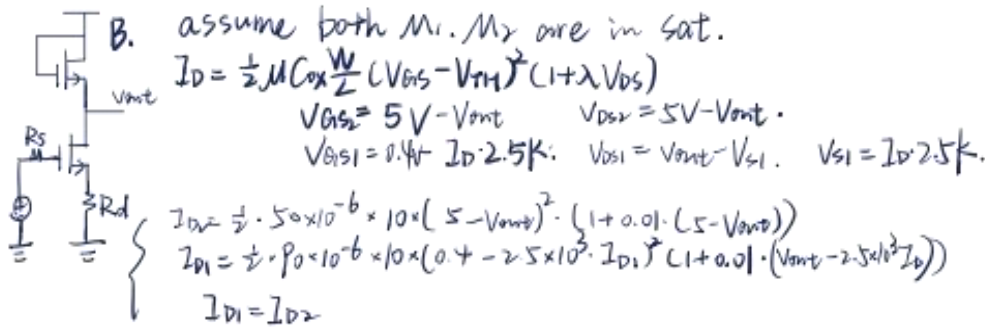 B. assume both M1. M2 are in sat.
ID = 1/2 μCox W/2 (VGS - VTH)² (1+λVDS)
Vout
VGS2 = 5V - Vout VDS2 = 5V - Vout.
Rs
VGS1 = 0.4V - ID·2.5K. VDS1 = Vout - VS1. VS1 = ID·2.5K.
Rd
ID2 = 1/2 · 50×10⁻⁶ × 10×( 5 - Vout)² · (1+0.01·(5-Vout))
ID1 = 1/2 · 90×10⁻⁶ ×10×(0.4 - 2.5×10³· ID1)² (1+0.01·(Vout - 2.5×10³ID))
ID1 = ID2